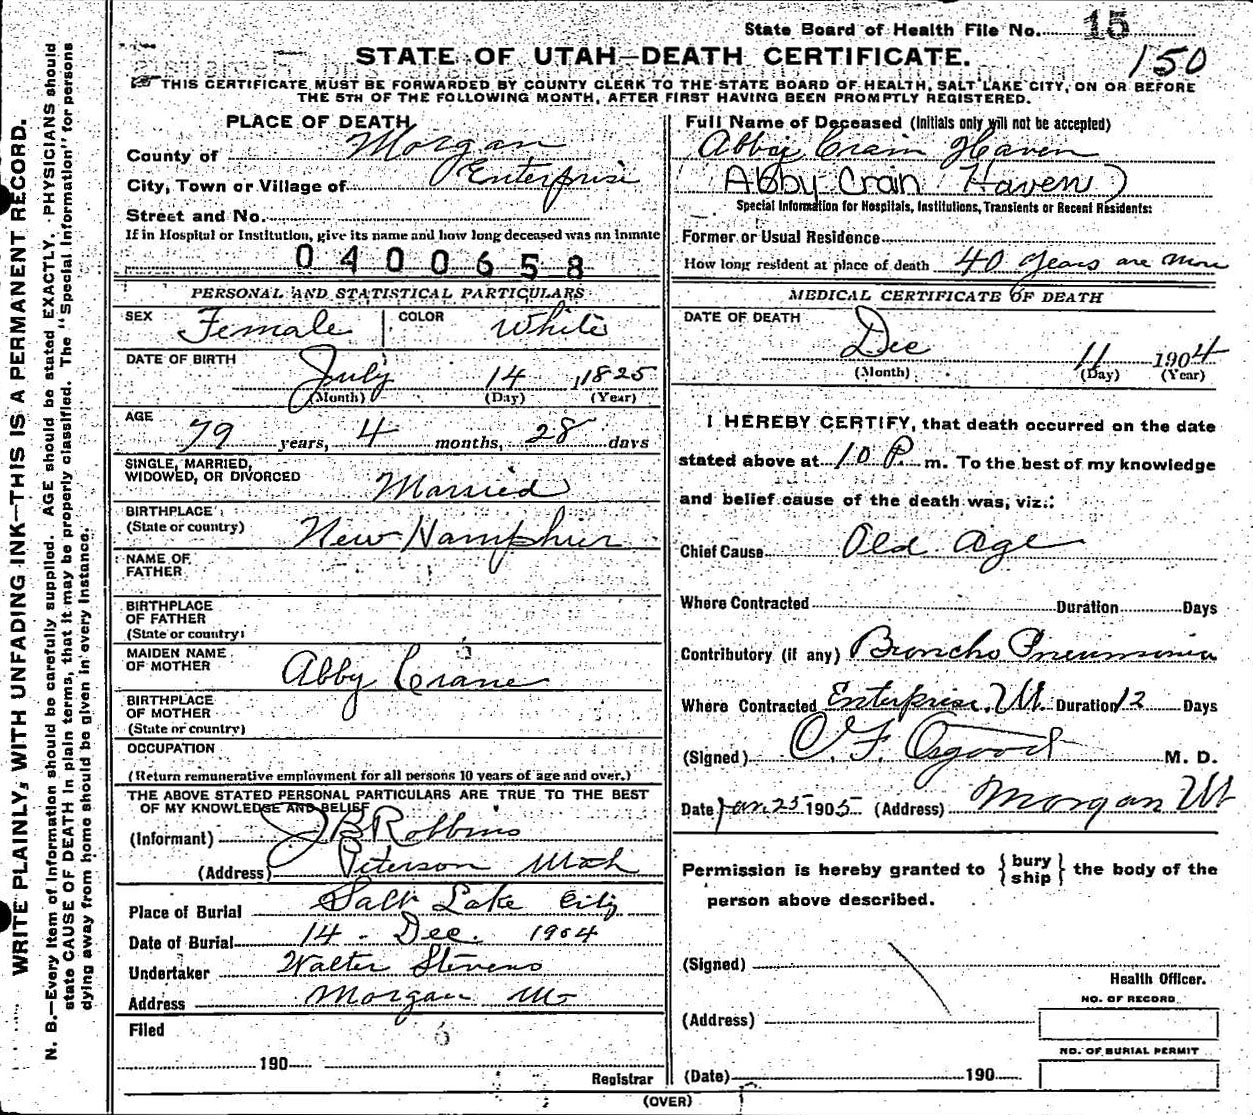 State Board of Health File No. 15
150
STATE OF UTAH—DEATH CERTIFICATE.
THIS CERTIFICATE MUST BE FORWARDED BY COUNTY CLERK TO THE STATE BOARD OF HEALTH, SALT LAKE CITY, ON OR BEFORE
THE 5TH OF THE FOLLOWING MONTH, AFTER FIRST HAVING BEEN PROMPTLY REGISTERED.
WRITE PLAINLY, WITH UNFADING INK—THIS IS A PERMANENT RECORD.
N. B.—Every item of Information should be carefully supplied. AGE should be stated EXACTLY. PHYSICIANS should
state CAUSE OF DEATH in plain terms, that it may be properly classified. The "Special Information" for persons
dying away from home should be given in every instance.
PLACE OF DEATH
County of Morgan
City, Town or Village of Enterprise
Street and No.
If in Hospital or Institution, give its name and how long deceased was an inmate
0400658
PERSONAL AND STATISTICAL PARTICULARS
SEX Female COLOR White
DATE OF BIRTH
July 14, 1825
(Month) (Day) (Year)
AGE
79 years, 4 months, 28 days
SINGLE, MARRIED,
WIDOWED, OR DIVORCED Married
BIRTHPLACE
(State or country) New Hamphier
NAME OF
FATHER
BIRTHPLACE
OF FATHER
(State or country)
MAIDEN NAME
OF MOTHER Abby Crane
BIRTHPLACE
OF MOTHER
(State or country)
OCCUPATION
(Return remunerative employment for all persons 10 years of age and over.)
THE ABOVE STATED PERSONAL PARTICULARS ARE TRUE TO THE BEST
OF MY KNOWLEDGE AND BELIEF
(Informant) J B Robbins
(Address) Peterson Utah
Place of Burial Salt Lake City
Date of Burial 14 - Dec. 1904
Undertaker Walter Stevens
Address Morgan Ut
Filed
190
Registrar
Full Name of Deceased (Initials only will not be accepted)
Abby Crain Haven
Abby Crain Havens)
Special Information for Hospitals, Institutions, Transients or Recent Residents:
Former or Usual Residence
How long resident at place of death 40 years are more
MEDICAL CERTIFICATE OF DEATH
DATE OF DEATH
Dec 11 1904
(Month) (Day) (Year)
I HEREBY CERTIFY, that death occurred on the date
stated above at 10 P. m. To the best of my knowledge
and belief cause of the death was, viz.:
Chief Cause Old age
Where Contracted Duration Days
Contributory (if any) Broncho Pneumonia
Where Contracted Enterprise. Ut. Duration 12 Days
(Signed) O F Osgood M. D.
Date Jan. 25 1905 (Address) Morgan Ut
Permission is hereby granted to { bury ship } the body of the
person above described.
(Signed)
Health Officer.
NO. OF RECORD
(Address)
NO. OF BURIAL PERMIT
(Date) 190
(OVER)